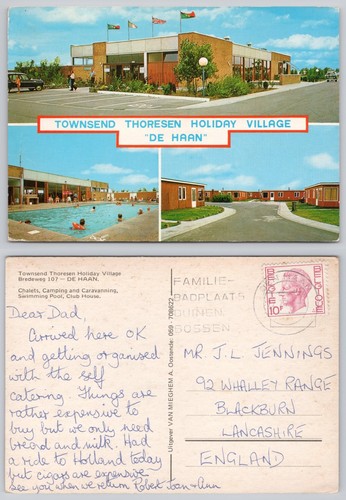 TOWNSEND THORESEN HOLIDAY VILLAGE
"DE HAAN"
Townsend Thoresen Holiday Village
Bredeweg 107 — DE HAAN.
Chalets, Camping and Caravanning,
Swimming Pool, Club House.
Dear Dad,
Arrived here OK
and getting organised
with the self
catering. Things are
rather expensive to
buy but we only need
bread and milk. Had
a ride to Holland today
but cigars are expensive
see you when we return Robert Joan & Ann
Uitgever VAN MIEGHEM A. Oostende: 059 - 708622
FAMILIE-
BADPLAATS
DUINEN
BOSSEN
BELGIE-BELGIQUE
10F
MR. J. L JENNINGS
92 WHALLEY RANGE
BLACKBURN
LANCASHIRE
ENGLAND